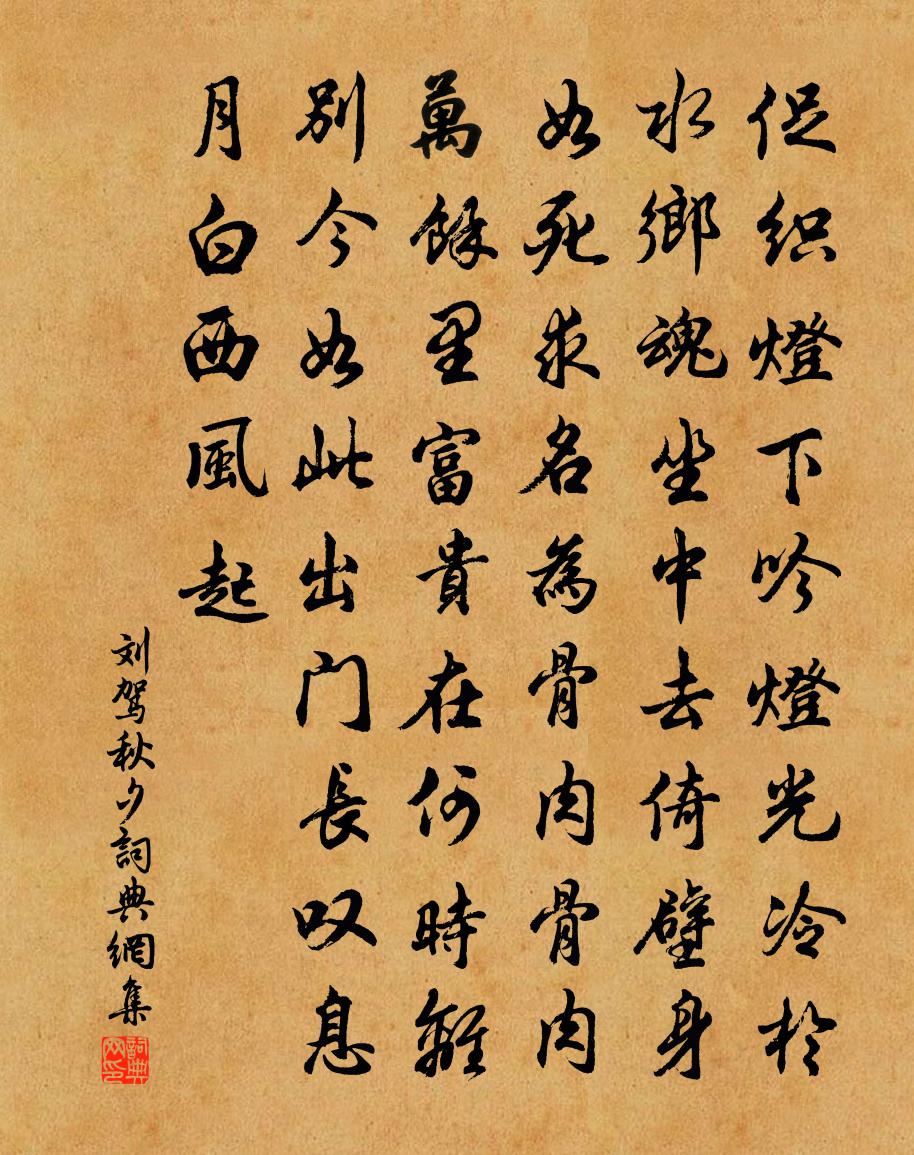 促织燈下吟燈光冷於
水鄉魂坐中去倚壁身
如死求名為骨肉骨肉
萬餘里富貴在何時離
別今如此出门長叹息
月白西風起
刘驾秋夕詞典網集
詞典网印